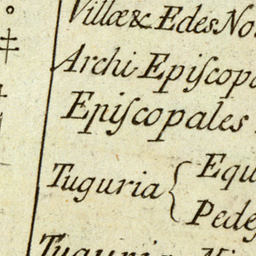 Villæ & Edes No
Archi-Epiſcopa
Epiſcopales
Tuguria { Equ
Pedeſ
Tuguria